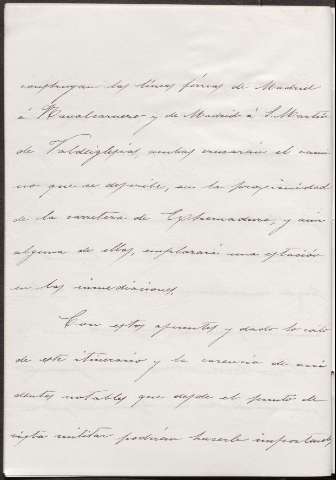 construyan las lineas férreas de Madrid
á Navalcarnero y de Madrid á S. Martin
de Valdeiglesias, ambas cruzarán el cami
no que se describe, en la proximidad
de la carretera de Extremadura, y aun
alguna de ellas, emplazará una estación
en las inmediaciones.
Con estos apuntes y dado lo corto
de este itinerario y la carencia de acci
dentes notables que desde el punto de
vista militar podrian hacerle importante,